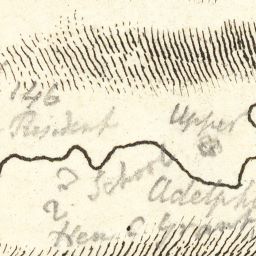 146
Resident
Upper
2 School
Adelphi
2
Hen C Grant